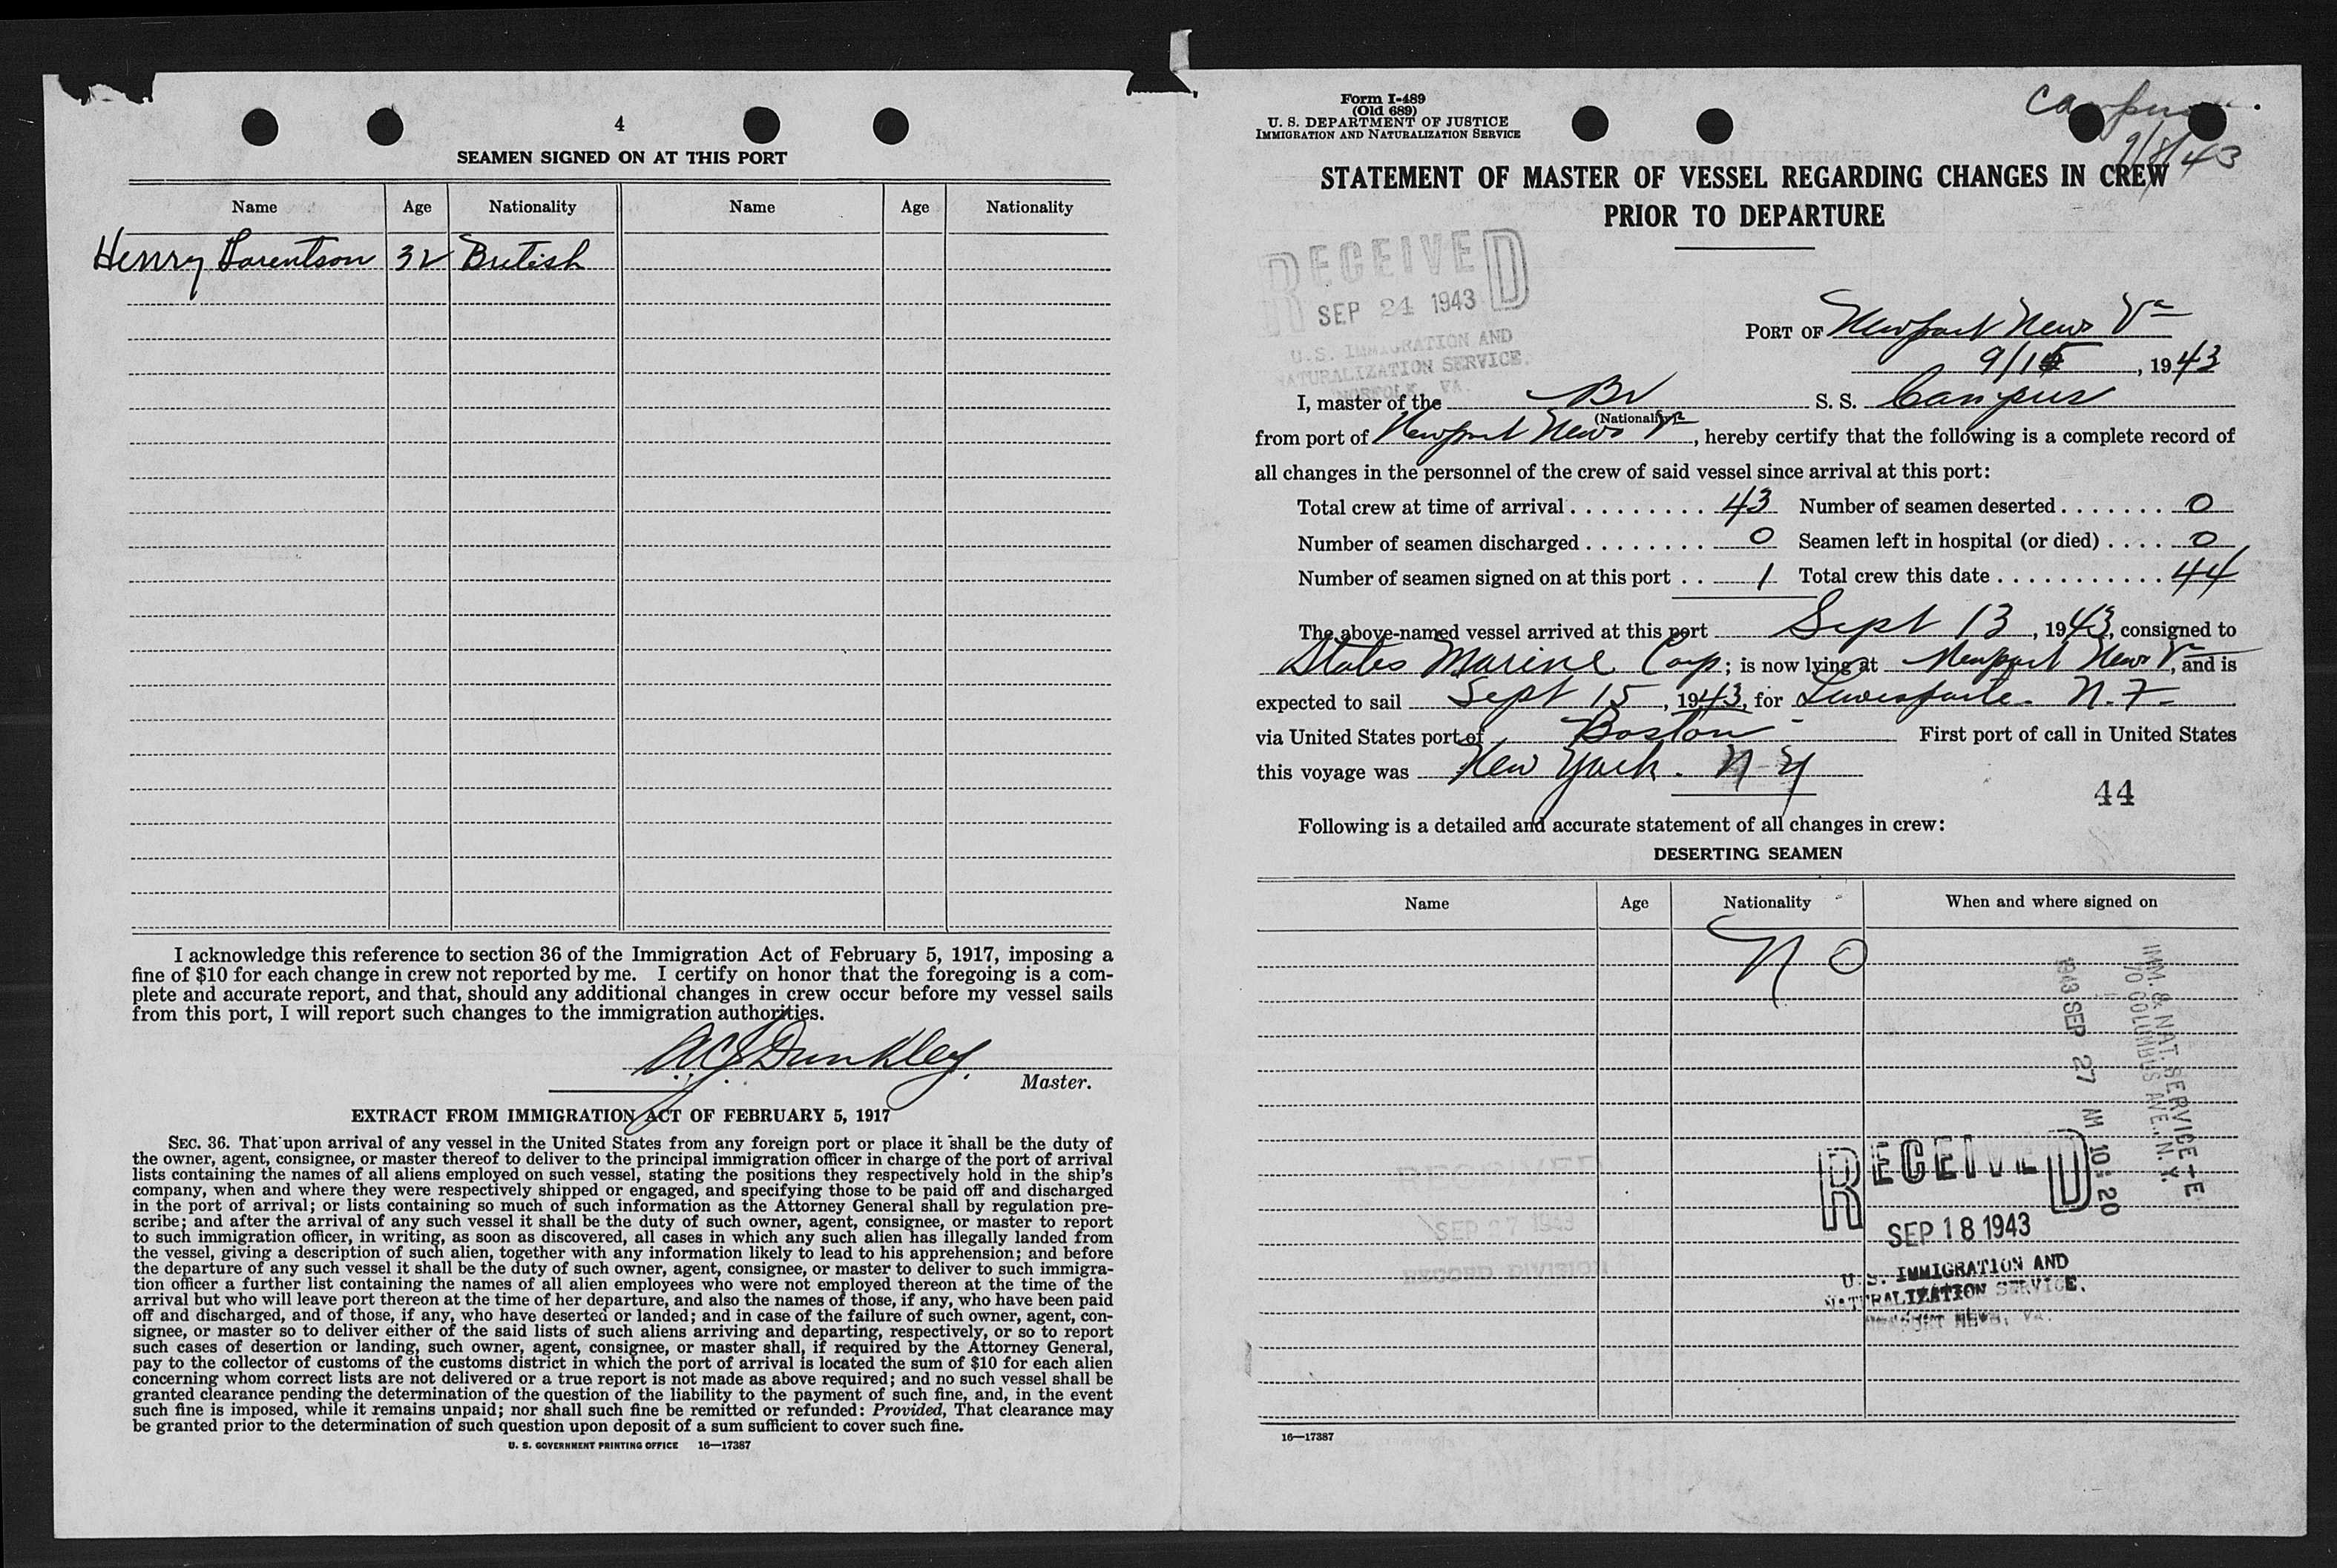 4
SEAMEN SIGNED ON AT THIS PORT
Name Age Nationality Name Age Nationality
Henry 32 British
I acknowledge this reference to section 36 of the Immigration Act of February 5, 1917, imposing a
fine of $10 for each change in crew not reported by me. I certify on honor that the foregoing is a com-
plete and accurate report, and that, should any additional changes in crew occur before my vessel sails
from this port, I will report such changes to the immigration authorities.
Dunkley
Master.
EXTRACT FROM IMMIGRATION ACT OF FEBRUARY 5, 1917
SEC. 36. That upon arrival of any vessel in the United States from any foreign port or place it shall be the duty of
the owner, agent, consignee, or master thereof to deliver to the principal immigration officer in charge of the port of arrival
lists containing the names of all aliens employed on such vessel, stating the positions they respectively hold in the ship's
company, when and where they were respectively shipped or engaged, and specifying those to be paid off and discharged
in the port of arrival; or lists containing so much of such information as the Attorney General shall by regulation pre-
scribe; and after the arrival of any such vessel it shall be the duty of such owner, agent, consignee, or master to report
to such immigration officer, in writing, as soon as discovered, all cases in which any such alien has illegally landed from
the vessel, giving a description of such alien, together with any information likely to lead to his apprehension; and before
the departure of any such vessel it shall be the duty of such owner, agent, consignee, or master to deliver to such immigra-
tion officer a further list containing the names of all alien employees who were not employed thereon at the time of the
arrival but who will leave port thereon at the time of her departure, and also the names of those, if any, who have been paid
off and discharged, and of those, if any, who have deserted or landed; and in case of the failure of such owner, agent, con-
signee, or master so to deliver either of the said lists of such aliens arriving and departing, respectively, or so to report
such cases of desertion or landing, such owner, agent, consignee, or master shall, if required by the Attorney General,
pay to the collector of customs of the customs district in which the port of arrival is located the sum of $10 for each alien
concerning whom correct lists are not delivered or a true report is not made as above required; and no such vessel shall be
granted clearance pending the determination of the question of the liability to the payment of such fine, and, in the event
such fine is imposed, while it remains unpaid; nor shall such fine be remitted or refunded: Provided, That clearance may
be granted prior to the determination of such question upon deposit of a sum sufficient to cover such fine.
U. S. GOVERNMENT PRINTING OFFICE 16—17387
Form I-489
(Old 689)
U. S. DEPARTMENT OF JUSTICE
IMMIGRATION AND NATURALIZATION SERVICE
Campus
9/8/43
STATEMENT OF MASTER OF VESSEL REGARDING CHANGES IN CREW
PRIOR TO DEPARTURE
RECEIVED
SEP 24 1943
U.S. IMMIGRATION AND
NATURALIZATION SERVICE.
NORFOLK, VA.
PORT OF Newport News Va
9/15, 1943
I, master of the Br S. S. Campus
(Nationality)
from port of Newport News Va, hereby certify that the following is a complete record of
all changes in the personnel of the crew of said vessel since arrival at this port:
Total crew at time of arrival . . . . . . . . . 43 Number of seamen deserted . . . . . . . 0
Number of seamen discharged . . . . . . . . 0 Seamen left in hospital (or died) . . . . 0
Number of seamen signed on at this port . . 1 Total crew this date . . . . . . . . . . . 44
The above-named vessel arrived at this port Sept 13, 1943, consigned to
States Marine Corp; is now lying at Newport News Va, and is
expected to sail Sept 15, 1943, for N.F.
via United States port of Boston First port of call in United States
this voyage was New York. N-Y
44
Following is a detailed and accurate statement of all changes in crew:
DESERTING SEAMEN
Name Age Nationality When and where signed on
NO
IMM. & NAT. SERVICE-E
70 COLUMBUS AVE., N.Y.
1943 SEP 27 AM 10:20
RECEIVED
SEP 27 1943
RECORD DIVISION
RECEIVED
SEP 18 1943
U. S. IMMIGRATION AND
NATURALIZATION SERVICE.
NEWPORT NEWS, VA.
16—17387